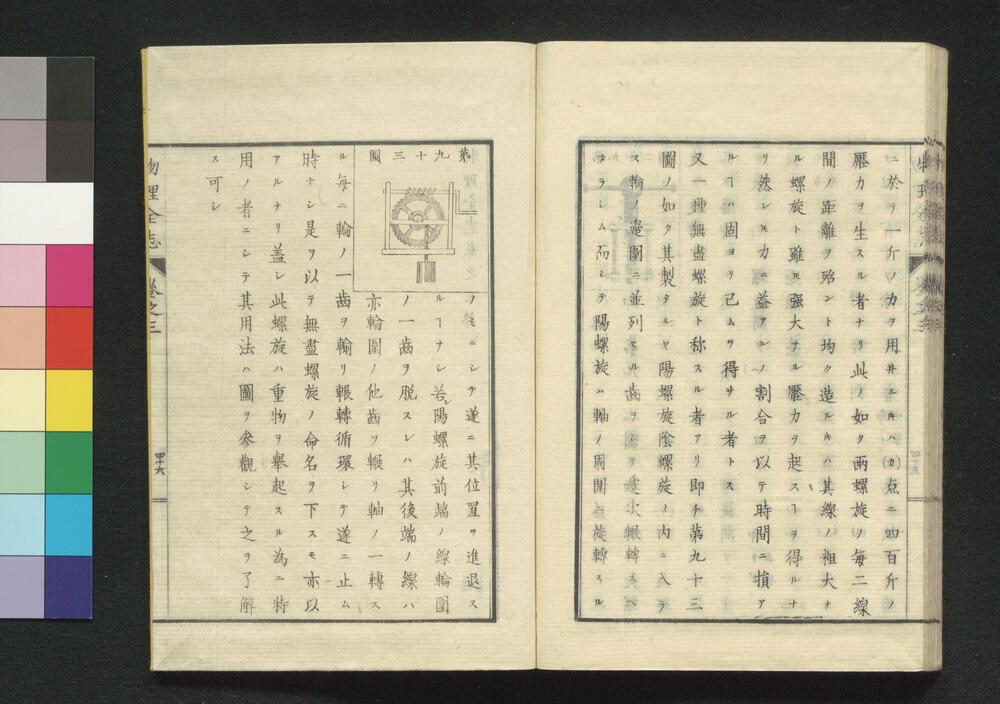 ニ於テ一斤ノカヲ用井ルキハ(カ)点ニ四百斤ノ
壓力ヲ生スル者ナリ此ノ如ク両螺旋ノ毎二線
間ノ距離ヲ殆ント均ク造ルキハ其線ノ粗大ナ
ル螺旋ト雖𪜈强大ナル壓力ヲ起スヿヲ得ルナ
リ然レ𪜈力ニ益アルノ割合ヲ以テ時間ニ損ア
ルヿハ固ヨリ已ムヲ得サル者トス
又一種無盡螺旋ト称スル者アリ即チ第九十三
圖ノ如ク其製タルヤ陽螺旋陰螺旋ノ内ニ入ラ
ス輪ノ邉圍ニ並列セル齒ヲシテ逐次輾轉スヘ
カラシム而シテ陽螺旋ハ軸ノ周圍ニ旋轉スル
第九十三圖
ノミニシテ遂ニ其位置ヲ進退ス
ルヿナシ若シ陽螺旋前端ノ線輪圍
ノ一齒ヲ脱スレハ其後端ノ線ハ
亦輪圍ノ他齒ヲ輾リ軸ノ一轉ス
ル毎ニ輪ノ一齒ヲ輸リ輾轉循環シテ遂ニ止ム
時ナシ是ヲ以テ無盡螺旋ノ命名ヲ下スモ亦以
アルナリ盖シ此螺旋ハ重物ヲ擧起スル為ニ特
用ノ者ニシテ其用法ハ圖ヲ參觀シテ之ヲ了解
ス可シ
物理全志
卷之三
四十六